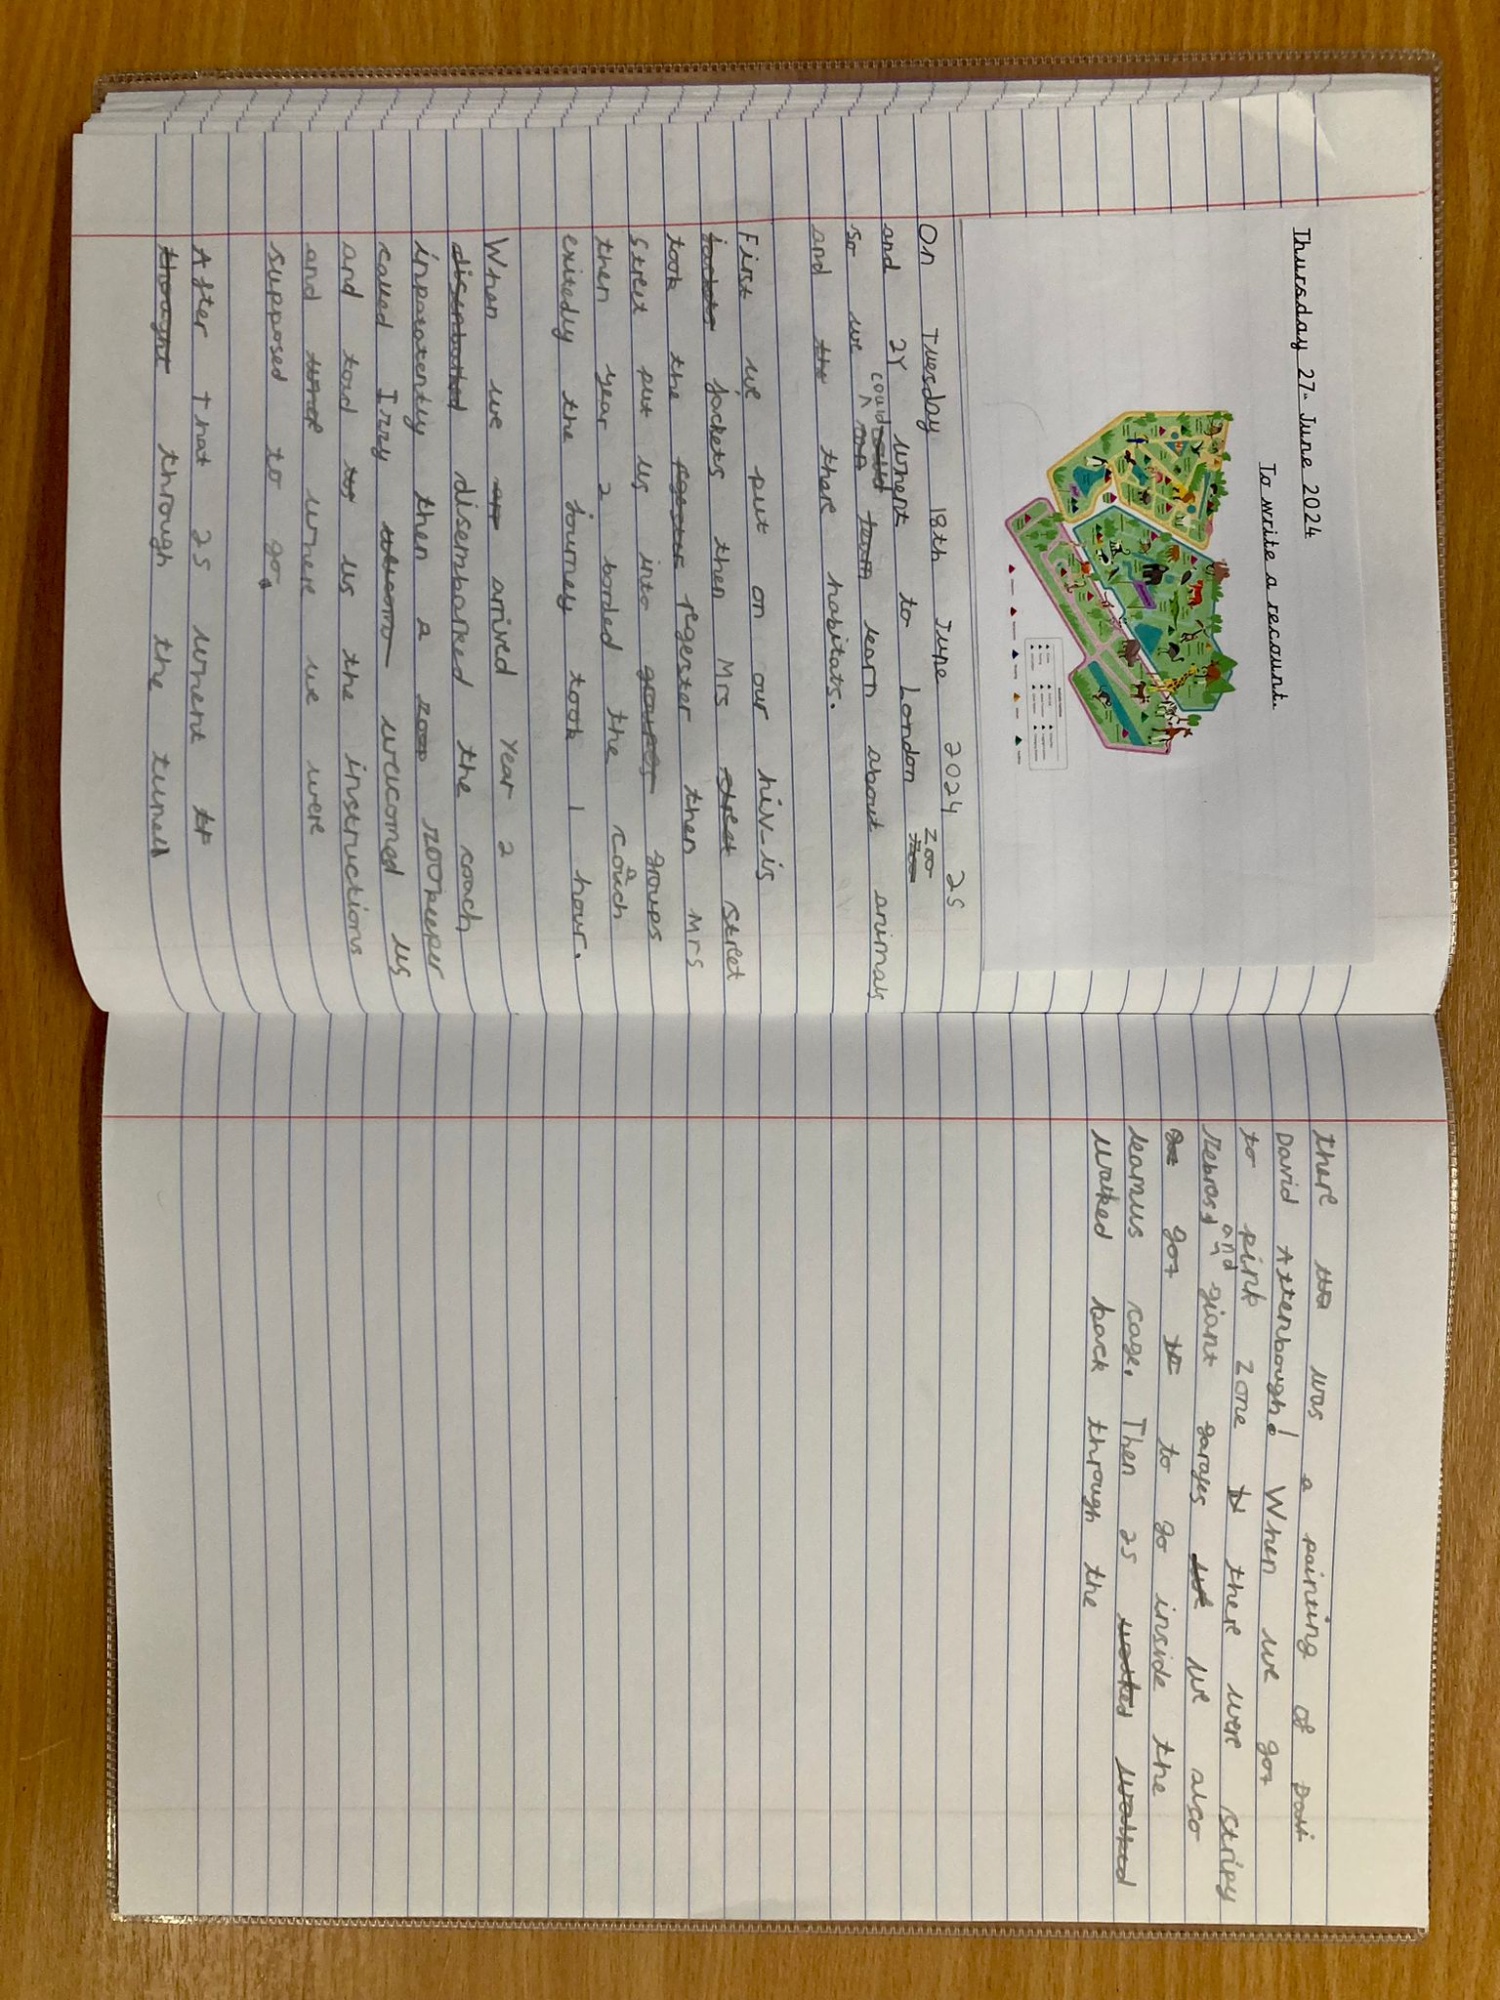 Thursday 27th June 2024
To write a recount.
On Tuesday 18th June 2024 2S
and 2Y whent to London zoo
so we could learn about animals
and there habitats.
First we put on our hiv-is
jackets then Mrs street
took the regester then Mrs
street put us into groups
then year 2 borded the coach
exitedly the journey took 1 hour.
When we arrived Year 2
disembarked the coach
inpatatently then a zookeeper
called Izzy welcomed us
and toud us the instructions
and where we were
supposed to go.
After That 2S whent
through the tunell
there was a painting of
David Attenbough! When we got
to pink zone there were stripy
zebras and giant garafes we also
got to go inside the
leamus cage. Then 2S
walked back through the